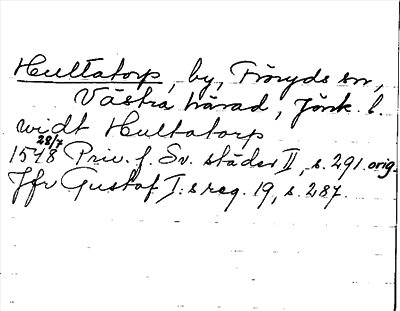 Hultatorp, by, Föryds sn,
Västra härad, Jönk. l.
widt Hultatorp
1548 28/7 Priv. f. Sv. städer II, s. 291. orig.
Jfr Gustaf I:s reg. 19, s. 287.